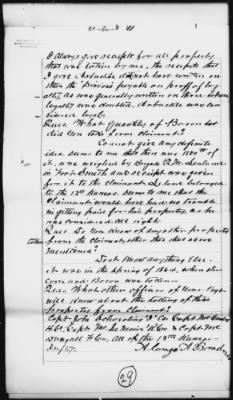 I always give receipt for all property
that was taken by me, the receipts that
I give Arbuckle did not have written on
them the Process payable on proff of loy
alty, as was generally written on those whose
loyalty was doubted, Arbuckle was con
sidered loyal.
Ques. What quantity of Bacon but
did you take from claimant?
Cannot give any definite
idea. seems to me that there was 1100 lbs of
it, was weighed by Brigade Q.M.
in Fort Smith and receipt was given
for it to the claimant, belonged
to the 13th Kansas. Seems to me that the
claimant would have had no trouble
in getting paid for his property, as he
was considered all right.
Ques. Do You Know of any other property
taken from the claimant, other than that above
mentioned?
I dont Know any thing else
it was in the spring of 1864, when the
corn and Bacon was taken
Ques. What other officers of Your Regt
know about the taking of this
property from claimant?
Capt John Co. Capt
H Co. Capt Mc K Co. & Capt Mc
F Co. all of the 13th Kansas
Alonzo A
29